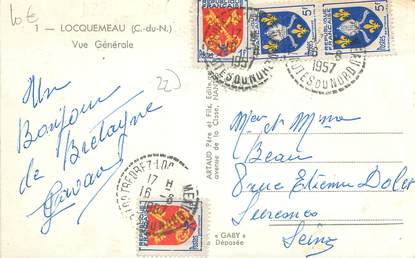 10€
1 - LOCQUEMEAU (C.-du-N.)
Vue Générale
22)
Un
Bonjour
de Bretagne
ARTAUD Père et Fils, Edite
avenue de la Close, NAN
« GABY »
Déposée
5F
5F
1957
1957
COTES DU NORD
17 H
16 - 8
Mr et Mme
Beau
8 rue Etienne Dolet
Suresnes
Seine